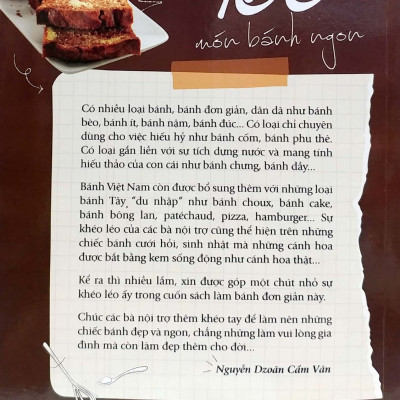 100
món bánh ngon
Có nhiều loại bánh, bánh đơn giản, dân dã như bánh
bèo, bánh ít, bánh nậm, bánh đúc... Có loại chỉ chuyên
dùng cho việc hiếu hỷ như bánh cốm, bánh phu thê.
Có loại gắn liền với sự tích dựng nước và mang tính
hiếu thảo của con cái như bánh chưng, bánh dầy...
Bánh Việt Nam còn được bổ sung thêm với những loại
bánh Tây "du nhập" như bánh choux, bánh cake,
bánh bông lan, patéchaud, pizza, hamburger... Sự
khéo léo của các bà nội trợ cũng thể hiện trên những
chiếc bánh cưới hỏi, sinh nhật mà những cánh hoa
được bắt bằng kem sống động như cánh hoa thật...
Kể ra thì nhiều lắm, xin được góp một chút nhỏ sự
khéo léo ấy trong cuốn sách làm bánh đơn giản này.
Chúc các bà nội trợ thêm khéo tay để làm nên những
chiếc bánh đẹp và ngon, chẳng những làm vui lòng gia
đình mà còn làm đẹp thêm cho đời...
Nguyễn Dzoãn Cẩm Vân